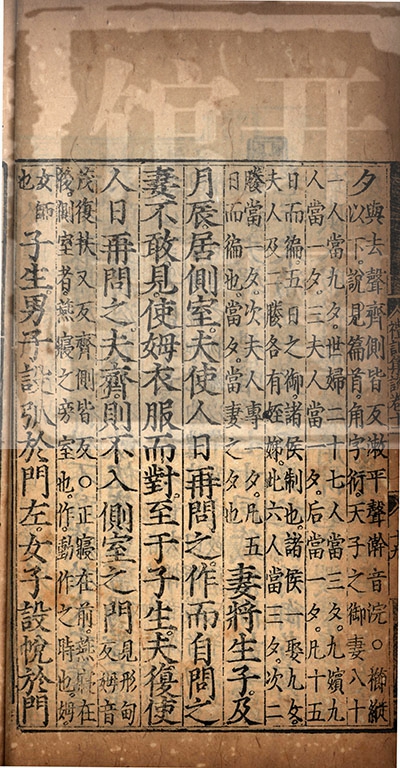 夕
與去聲齊側皆反漱平聲澣音浣○櫛縰
以下說見篇首角字衍天子之御妻八十
一人當九夕世婦二十七人當三夕九嬪九
人當一夕三夫人當一夕后當一夕凡十五
日而徧五日之御諸侯制也諸侯一娶九女
夫人及二媵各有姪娣此六人當三夕次二
媵當一夕次夫人專一夕凡五
日而徧也當夕當妻之夕也
妻將生子及
月辰居側室夫使人日再問之作而自問之
妻不敢見使姆衣服而對至于子生夫復使
人日再問之夫齊則不入側室之門
見形甸
反姆音
茂復扶又反齊側皆反○正寢在前燕寢在
後側室者燕寢之旁室也作動作之時也姆
女師
也
子生男子設弧於門左女子設帨於門